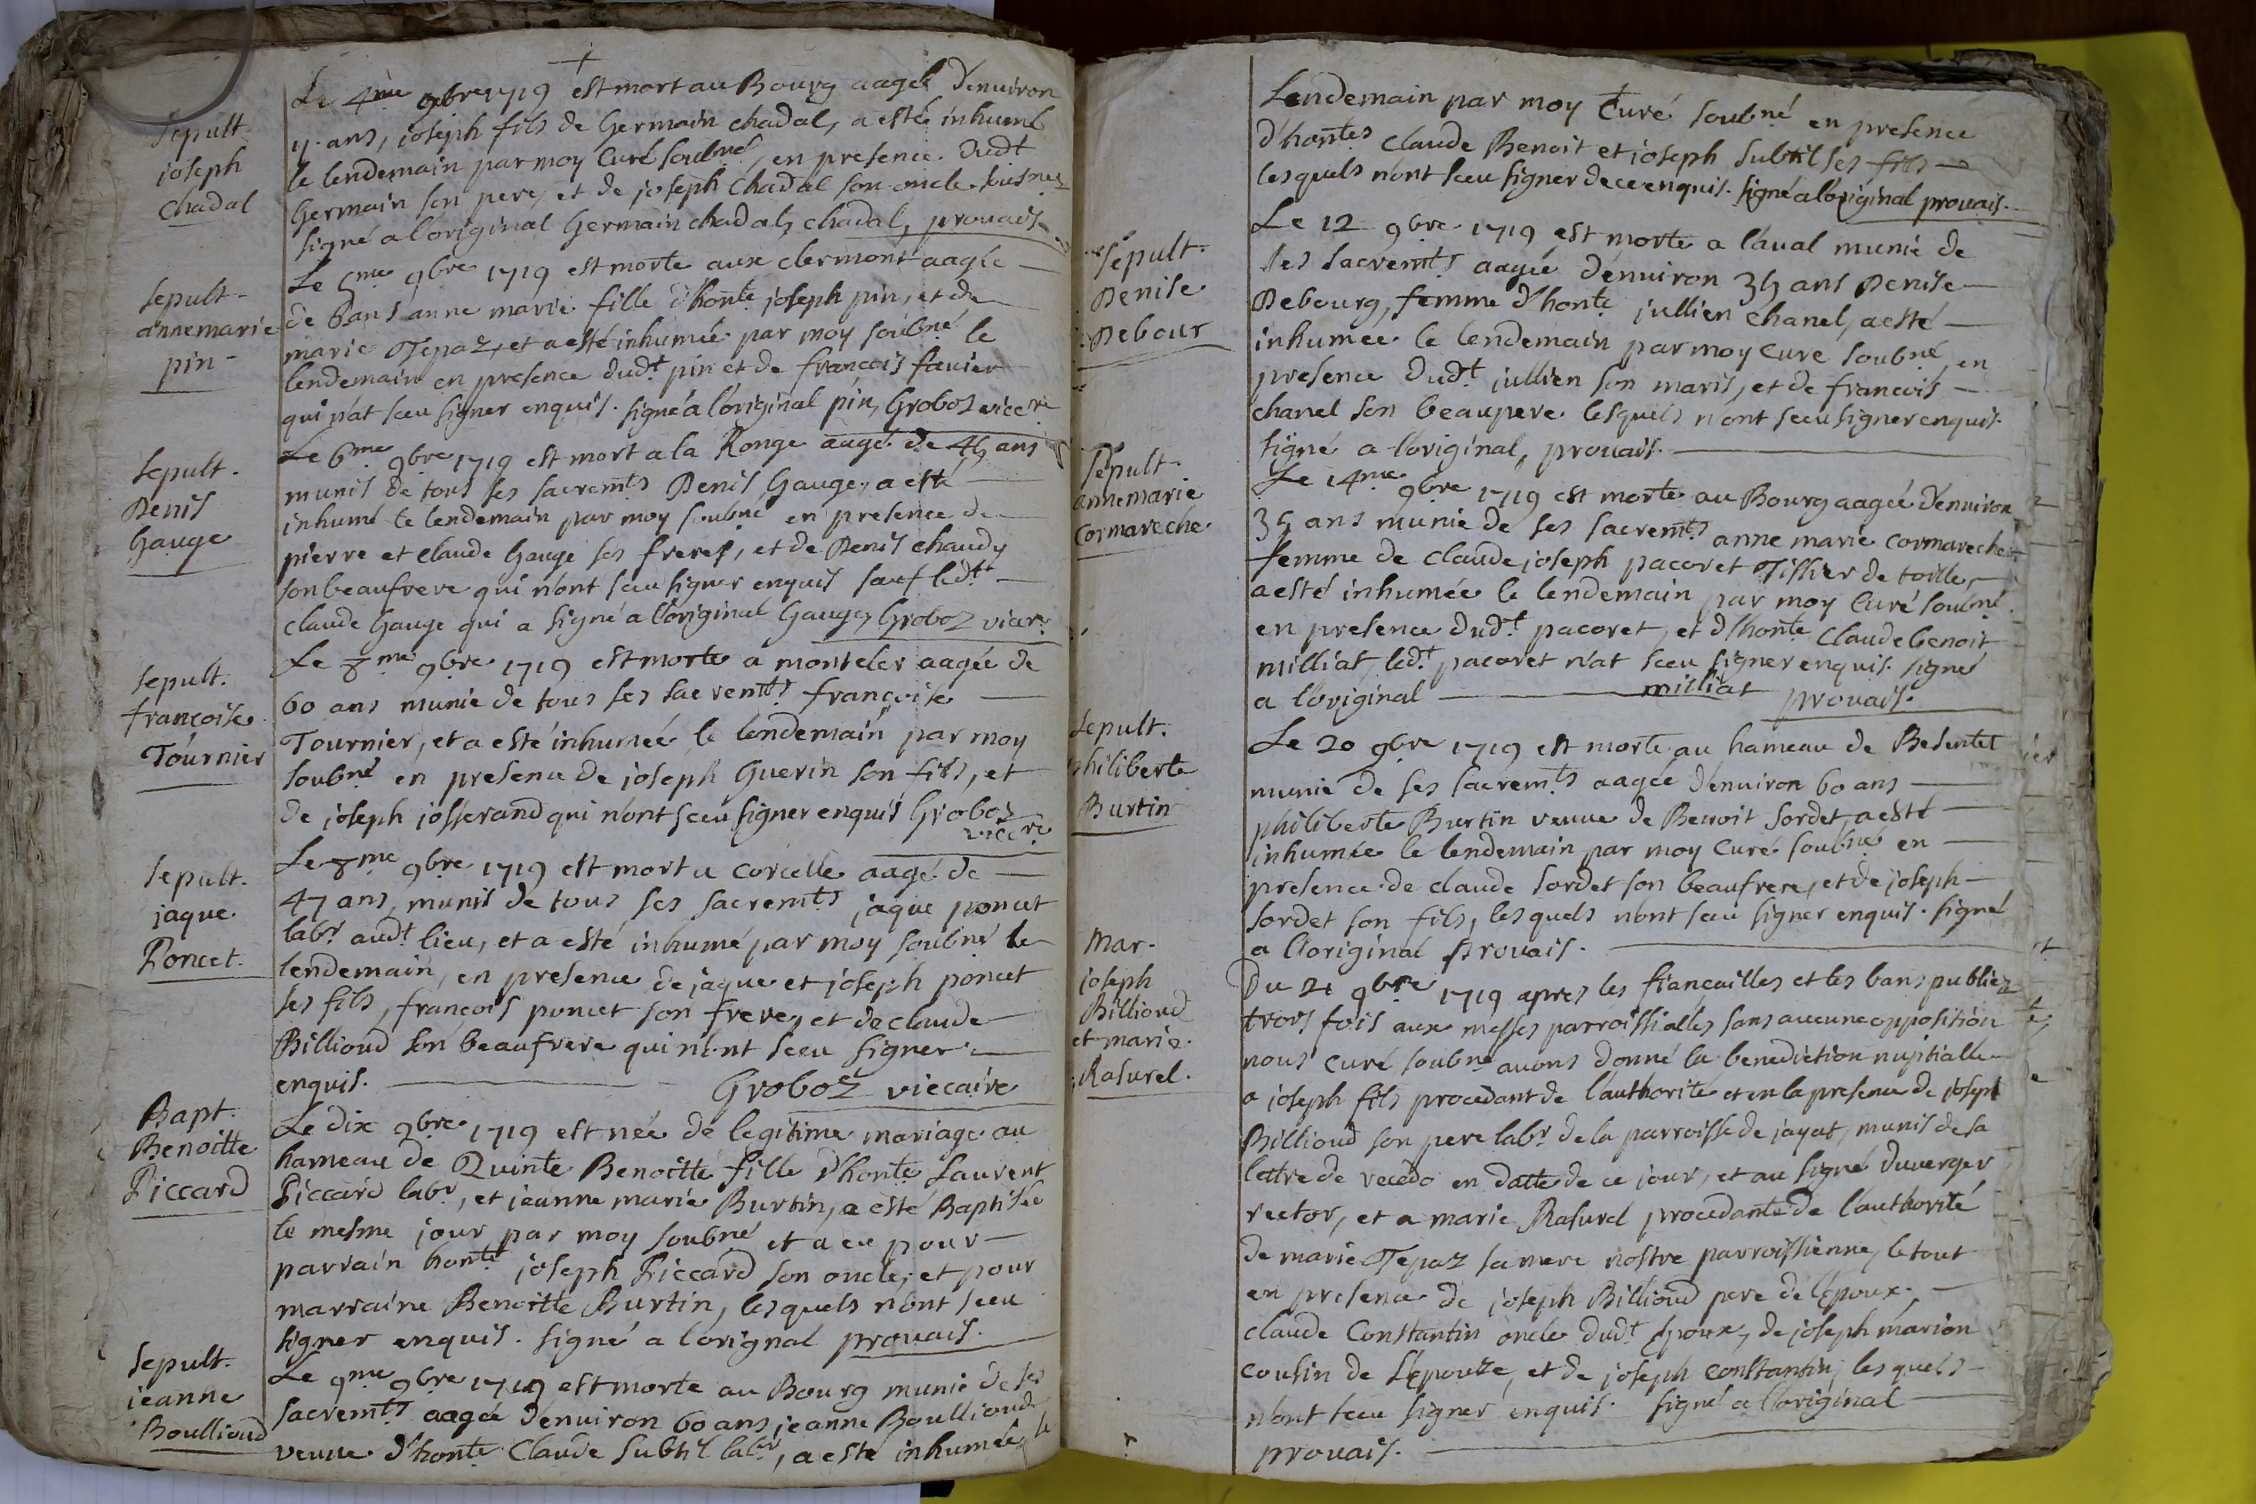 +
Sepult.
joseph
chadal
Le 4me 9bre 1719 est mort au Bourg aagée d'environ
ans, joseph fils de Germain chadal, a esté inhumé
le lendemain par moy Curé soubné, en presence dudt
Germain son pere, et de joseph Chadal son oncle
signé a l'original Germain chadal, chadal, provais.
sepult-
annemarie
pin-
Le 9bre 1719 est morte aux clermont aagée
de 6 ans anne marie fille d'honte joseph pin, et de
marie Tepaz, et a esté inhumée par moy soubné le
lendemain en presence dudt pin et de francois favier
qui n'at sceu signer enquis. signé a l'original pin, Groboz
Sepult.
Denis
Gauge
Le 6me 9bre 1719 est mort a la Ronge aagé de ans
munis de tous ses sacremts Denis Gauge, a esté
inhumé le lendemain par moy soubné en presence de
pierre et claude Gauge ses freres, et de Denis chaudy
son beaufrere qui n'ont sceu signer enquis sauf ledt
claude Gauge qui a signé a l'original Gauge, Groboz vicre
sepult.
françoise
Tournier
Le 8me 9bre 1719 est morte a monteler aagée de
60 ans munie de tous ses sacremts françoise
Tournier, et a esté inhumée le lendemain par moy
soubné en presence de joseph Guerin son fils, et
de joseph josserand qui n'ont sceu signer enquis Groboz
viccre
sepult.
jaque
Poncet.
Le 8me 9bre 1719 est mort a corcelle aagé de
47 ans, munis de tous ses sacremts jaque poncet
labr audt lieu, et a esté inhumé par moy soubné le
lendemain, en presence de jaque et joseph poncet
ses fils, francois poncet son frere, et de claude
Billioud son beaufrere qui n'ont sceu signer
enquis. Groboz viccaire
Bapt.
Benoitte
Piccard
Le dix 9bre 1719 est née de legitime mariage au
hameau de Quinte Benoitte fille d'honte Laurent
Piccard labr, et jeanne marie Burtin, a esté Baptisée
le mesme jour par moy soubné et a eu pour
parrain honte joseph Piccard son oncle, et pour
marraine Benoitte Burtin, lesquels n'ont sceu
signer enquis. signé a l'orignal provais.
sepult.
jeanne
Boullioud
Le 9me 9bre 1719 est morte au Bourg munie de ses
sacremts aagée d'environ 60 ans jeanne Boullioud
veuve d'honte Claude Subtil labr, a esté inhumée le
+
Lendemain par moy Curé soubné en presence
d'hontes Claude Benoit et joseph Subtil ses fils
lesquels n'ont sceu signer de ce enquis. signé a l'original provais.
Sepult.
Denise
Debour
Le 12 9bre 1719 est morte a laval munie de
ses sacremts aagée d'environ ans Denise
Debourg, femme d'honte jullien chanel, a esté
inhumée le lendemain par moy Curé soubné en
presence dudt jullien son maris, et de francois
chanel son beaupere lesquels n'ont sceu signer enquis.
signé a l'original, provais.
Sepult.
annemarie
Cormareche
Le 14me 9bre 1719 est morte au Bourg aagée d'environ
35 ans munie de ses sacremts anne marie cormareche
femme de claude joseph pacoret Tissier de toille,
a esté inhumée le lendemain par moy Curé soubné
en presence dudt pacoret, et d'honte Claude benoit
milliat, ledt pacoret n'at sceu signer enquis. signé
a l'original milliat provais.
sepult.
philiberte
Burtin
Le 20 9bre 1719 est morte au hameau de Besentet
munie de ses sacremts aagée d'environ 60 ans
philiberte Burtin veuve de Benoit Sordet, a esté
inhumée le lendemain par moy Curé soubné en
presence de claude Sordet son beaufrere, et de joseph
sordet son fils, lesquels n'ont sceu signer enquis. signé
a l'original provais.
Mar.
joseph
Billioud
et marie
Rasurel.
Du 21 9bre 1719 apres les fiançailles et les bans publiez
trois fois aux messes parroissialles sans aucune opposition
nous Curé soubné avons donné la benediction nuptialle
a joseph fils procedant de l'authorité et en la presence de joseph
Billioud son pere labr de la parroisse de jayat, munis de sa
lettre de recedo en datte de ce jour, et au signé Duverger
rector, et a marie Rasurel procedante de l'authorité
de marie Tepaz sa mere nostre parroissienne, le tout
en presence de joseph Billioud pere de l'Epoux.
claude Constantin oncle dudt Epoux, de joseph marion
cousin de l'Epouze, et de joseph constantin, lesquels
n'ont sceu signer enquis. signé a l'original
provais.